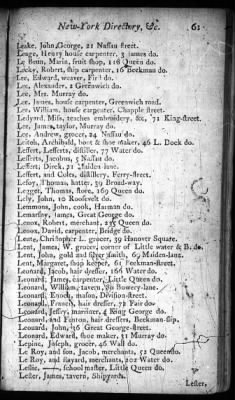 New-York Directory, &c. 61
Leake, John George, 21 Nassau street.
Leage, Henry house carpenter, 3 James do.
Le Beau, Maria, fruit shop, 118 Queen do.
Lecky, Robert, ship carpenter, 16 Beekman do.
Lee, Edward, weaver, do.
Lee, Alexander, 2 Greenwich do.
Lee, Mrs. Murray do.
Lee, James, house carpenter, Greenwich road.
Lee, William, house carpenter, Chapple street.
Ledyard, Miss, teaches embroidery, &c, 72 King-street.
Lee, James, taylor, Murray do.
Lee, Andrew, grocer, 24 Nassau do.
Leitch, Archibald, boot & shoe maker, 46 L. Dock do.
Leffert, Lefferts, distiller, 77 Water do.
Lefferts, Jacobus, 5 Nassau do.
Leffert, Dirck, 21 Maiden lane.
Leffert, and Coles, distillery, Ferry-street.
Lefoy, Thomas, hatter, 39 Broad-way.
Legget, Thomas, store, 169 Queen do.
Lely, John, 10 Roosevelt do.
Lemmons, John, cook, Harman do.
Lemarsney, James, Great George do.
Lenox, Robert, merchant, 235 Queen do.
Lenox, David, carpenter, Bridge do.
Lente, Christopher L. grocer, 39 Hanover Square.
Lent, James, W. grocer, corner of Little water & B. do.
Lent, John, gold and silver smith, 69 Maiden-lane.
Lent, Margaret, shop keeper, 61 Peckman-street.
Leonard, Jacob, hair dresser, 166 Water do.
Leonard, James, carpenter, Little Queen do.
Leonard, William, tavern, 59 Bowery-lane.
Leonard, Enoch, mason, Division-street.
Leonard, Francis, hair dresser, 72 Fair do.
Leonard, Jessey, marriner, 4 King George do.
Leonard, and Fenton, hair dressers, Beekman-slip.
Leonard, John, 36 Great George-street.
Leonard, Edward, shoe maker, 31 Murray do.
Lepine, Joseph, grocer, 46 Wall do.
Le Roy, and son, Jacob, merchants, 32 Queen do.
Le Roy, and Bayard, merchants, 202 Water do.
Leslie, —, school master, Little Queen do.
Lester, James, tavern, Shipyards.
Lester,